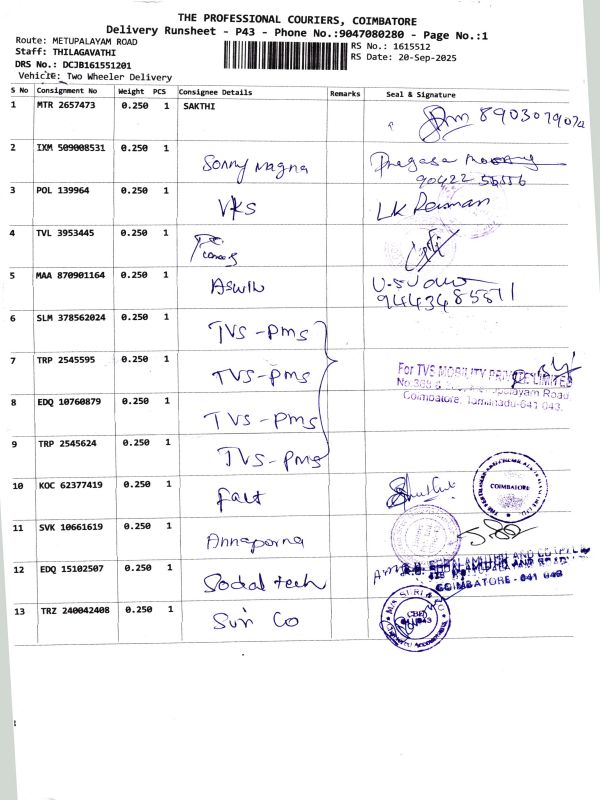 THE PROFESSIONAL COURIERS, COIMBATORE
Delivery Runsheet - P43 - Phone No.:9047080280 - Page No.:1
Route: METUPALAYAM ROAD
Staff: THILAGAVATHI
DRS No.: DCJB161551201
Vehicle: Two Wheeler Delivery
RS No.: 1615512
RS Date: 20-Sep-2025
S No Consignment No Weight PCS Consignee Details Remarks Seal & Signature
1 MTR 2657473 0.250 1 SAKTHI 8903079072
2 IXM 509008531 0.250 1 Sonny Magna
90422 55556
3 POL 139964 0.250 1 VKS LK
4 TVL 3953445 0.250 1
5 MAA 870901164 0.250 1 Aswin
9443485871
6 SLM 378562024 0.250 1 TVS-PMS
7 TRP 2545595 0.250 1 TVS-PMS
For TVS MOBILITY PRIVATE LIMITED
Coimbatore, Tamilnadu-641 043.
8 EDQ 10760879 0.250 1 TVS-PMS
9 TRP 2545624 0.250 1 TVS-PMS
10 KOC 62377419 0.250 1 fact
COIMBATORE
11 SVK 10661619 0.250 1 Annaporna
12 EDQ 15102507 0.250 1 Social tech
COIMBATORE - 641 043
13 TRZ 240042408 0.250 1 Suri Co
M/s SURI & CO
CBE